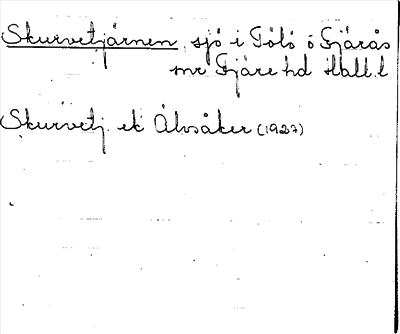 Skurvetjärnen, sjö i Tölö o Fjärås
snr Fjäre hd Hall. l
Skurvetj. ek Älvsåker (1927)